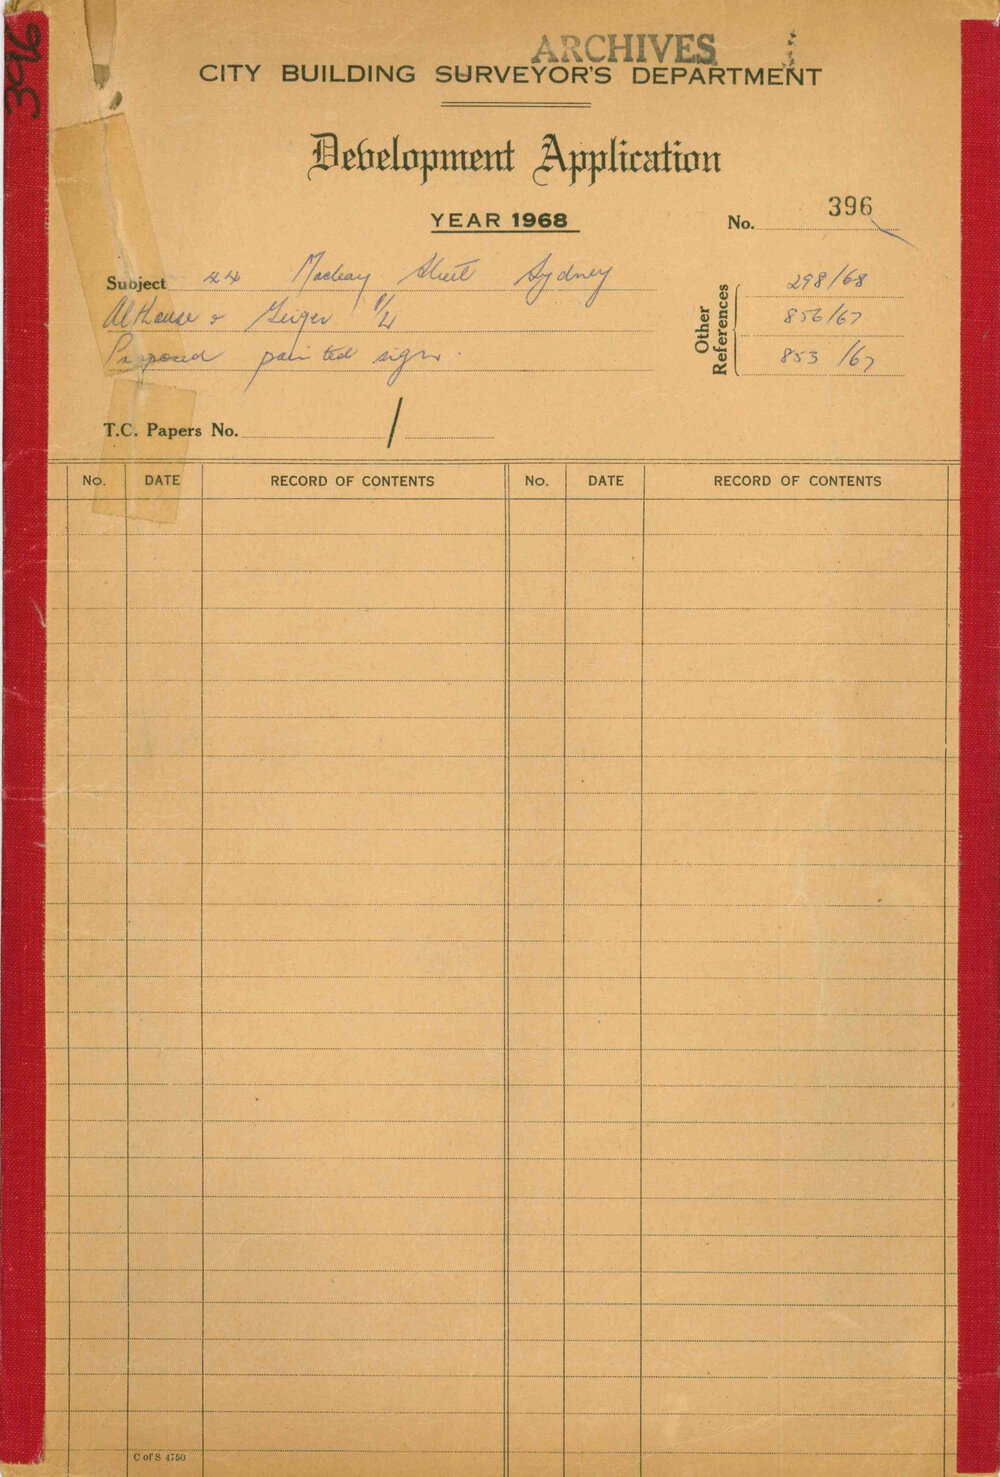 396
ARCHIVES
CITY BUILDING SURVEYOR'S DEPARTMENT
Development Application
YEAR 1968
No. 396
Subject 44 Macleay Street Sydney
Althouse & Geiger P/L
Proposed painted sign.
Other References
298/68
856/67
853/67
T.C. Papers No. /
No. DATE RECORD OF CONTENTS No. DATE RECORD OF CONTENTS
C of S 4750